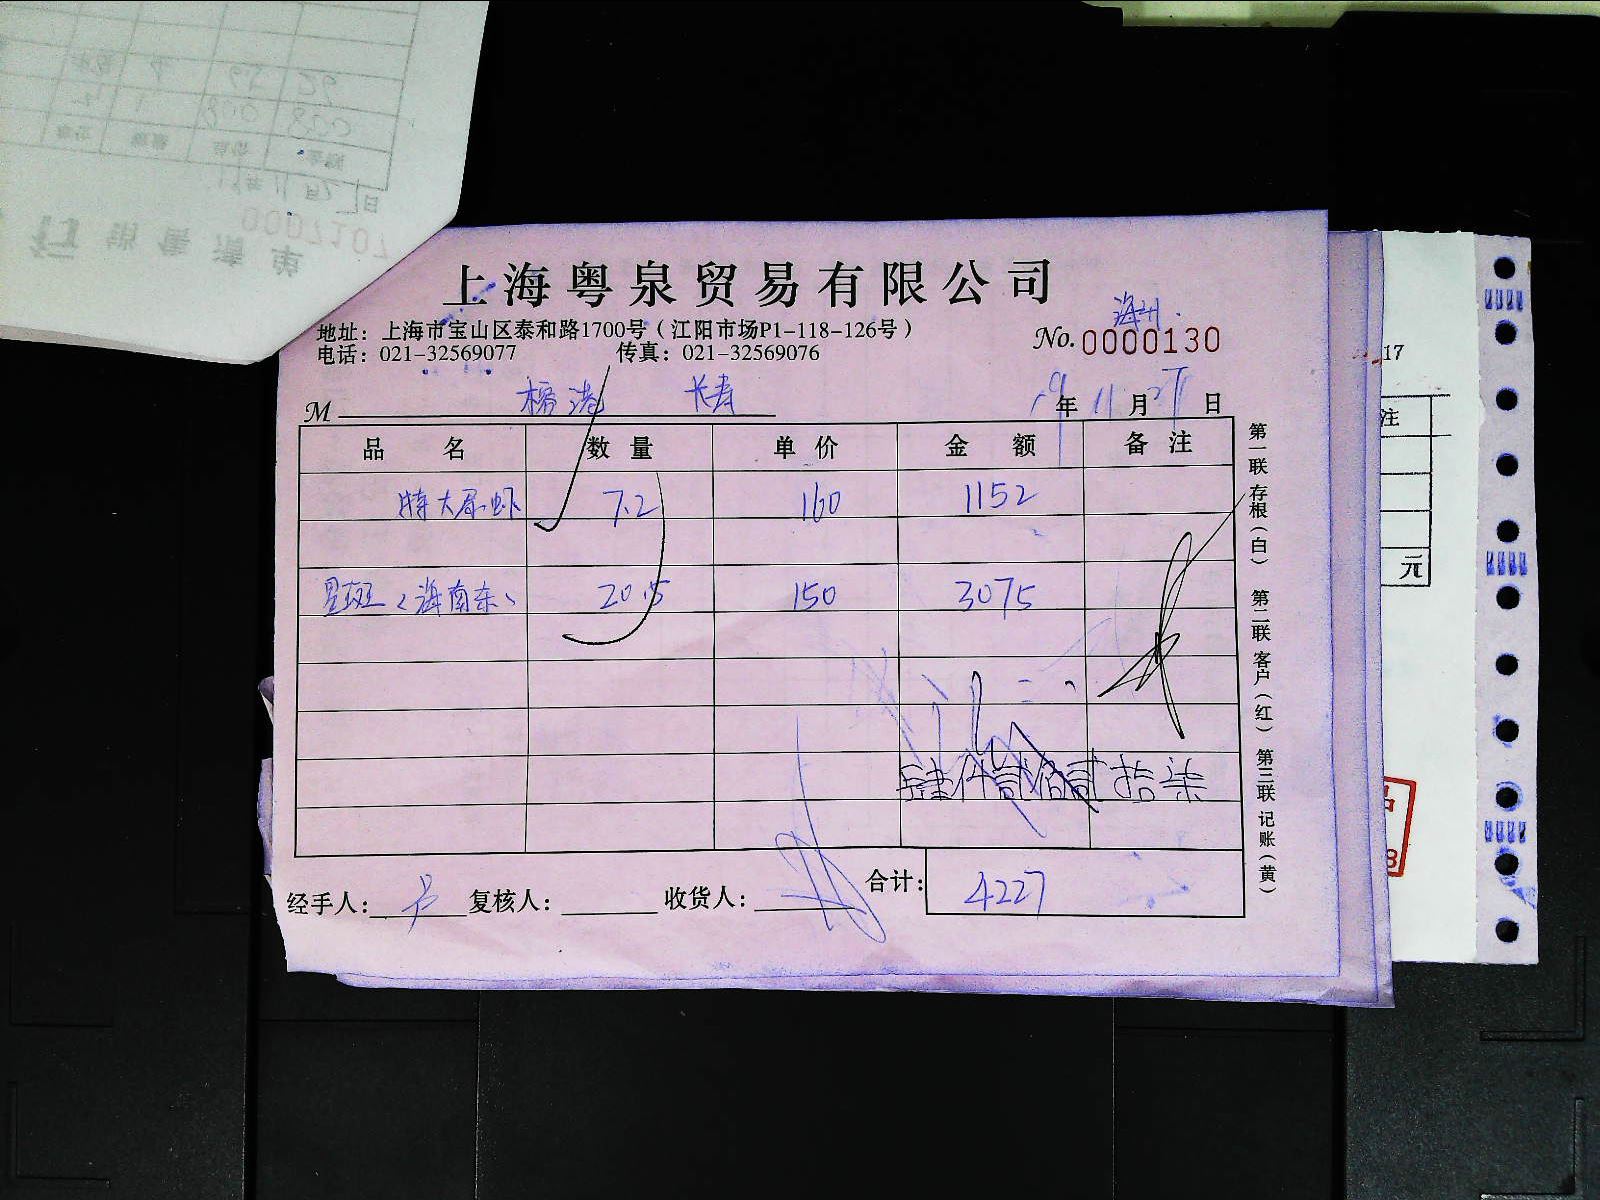 上海粤泉贸易有限公司
地址：上海市宝山区泰和路1700号（江阳市场P1-118-126号）
海州
No.0000130
电话：021-32569077 传真：021-32569076
M 长寿 19年11月27日
品名 数量 单价 金额 备注
特大尿虾 7.2 160 1152
星斑（海南东） 20.5 150 3075
肆仟贰佰贰拾柒
合计：4227
经手人：卢 复核人： 收货人：
第一联存根（白） 第二联客户（红） 第三联记账（黄）
17
注
元
8
销售清单
0007107
11月27日
单位 数量 单价 金额